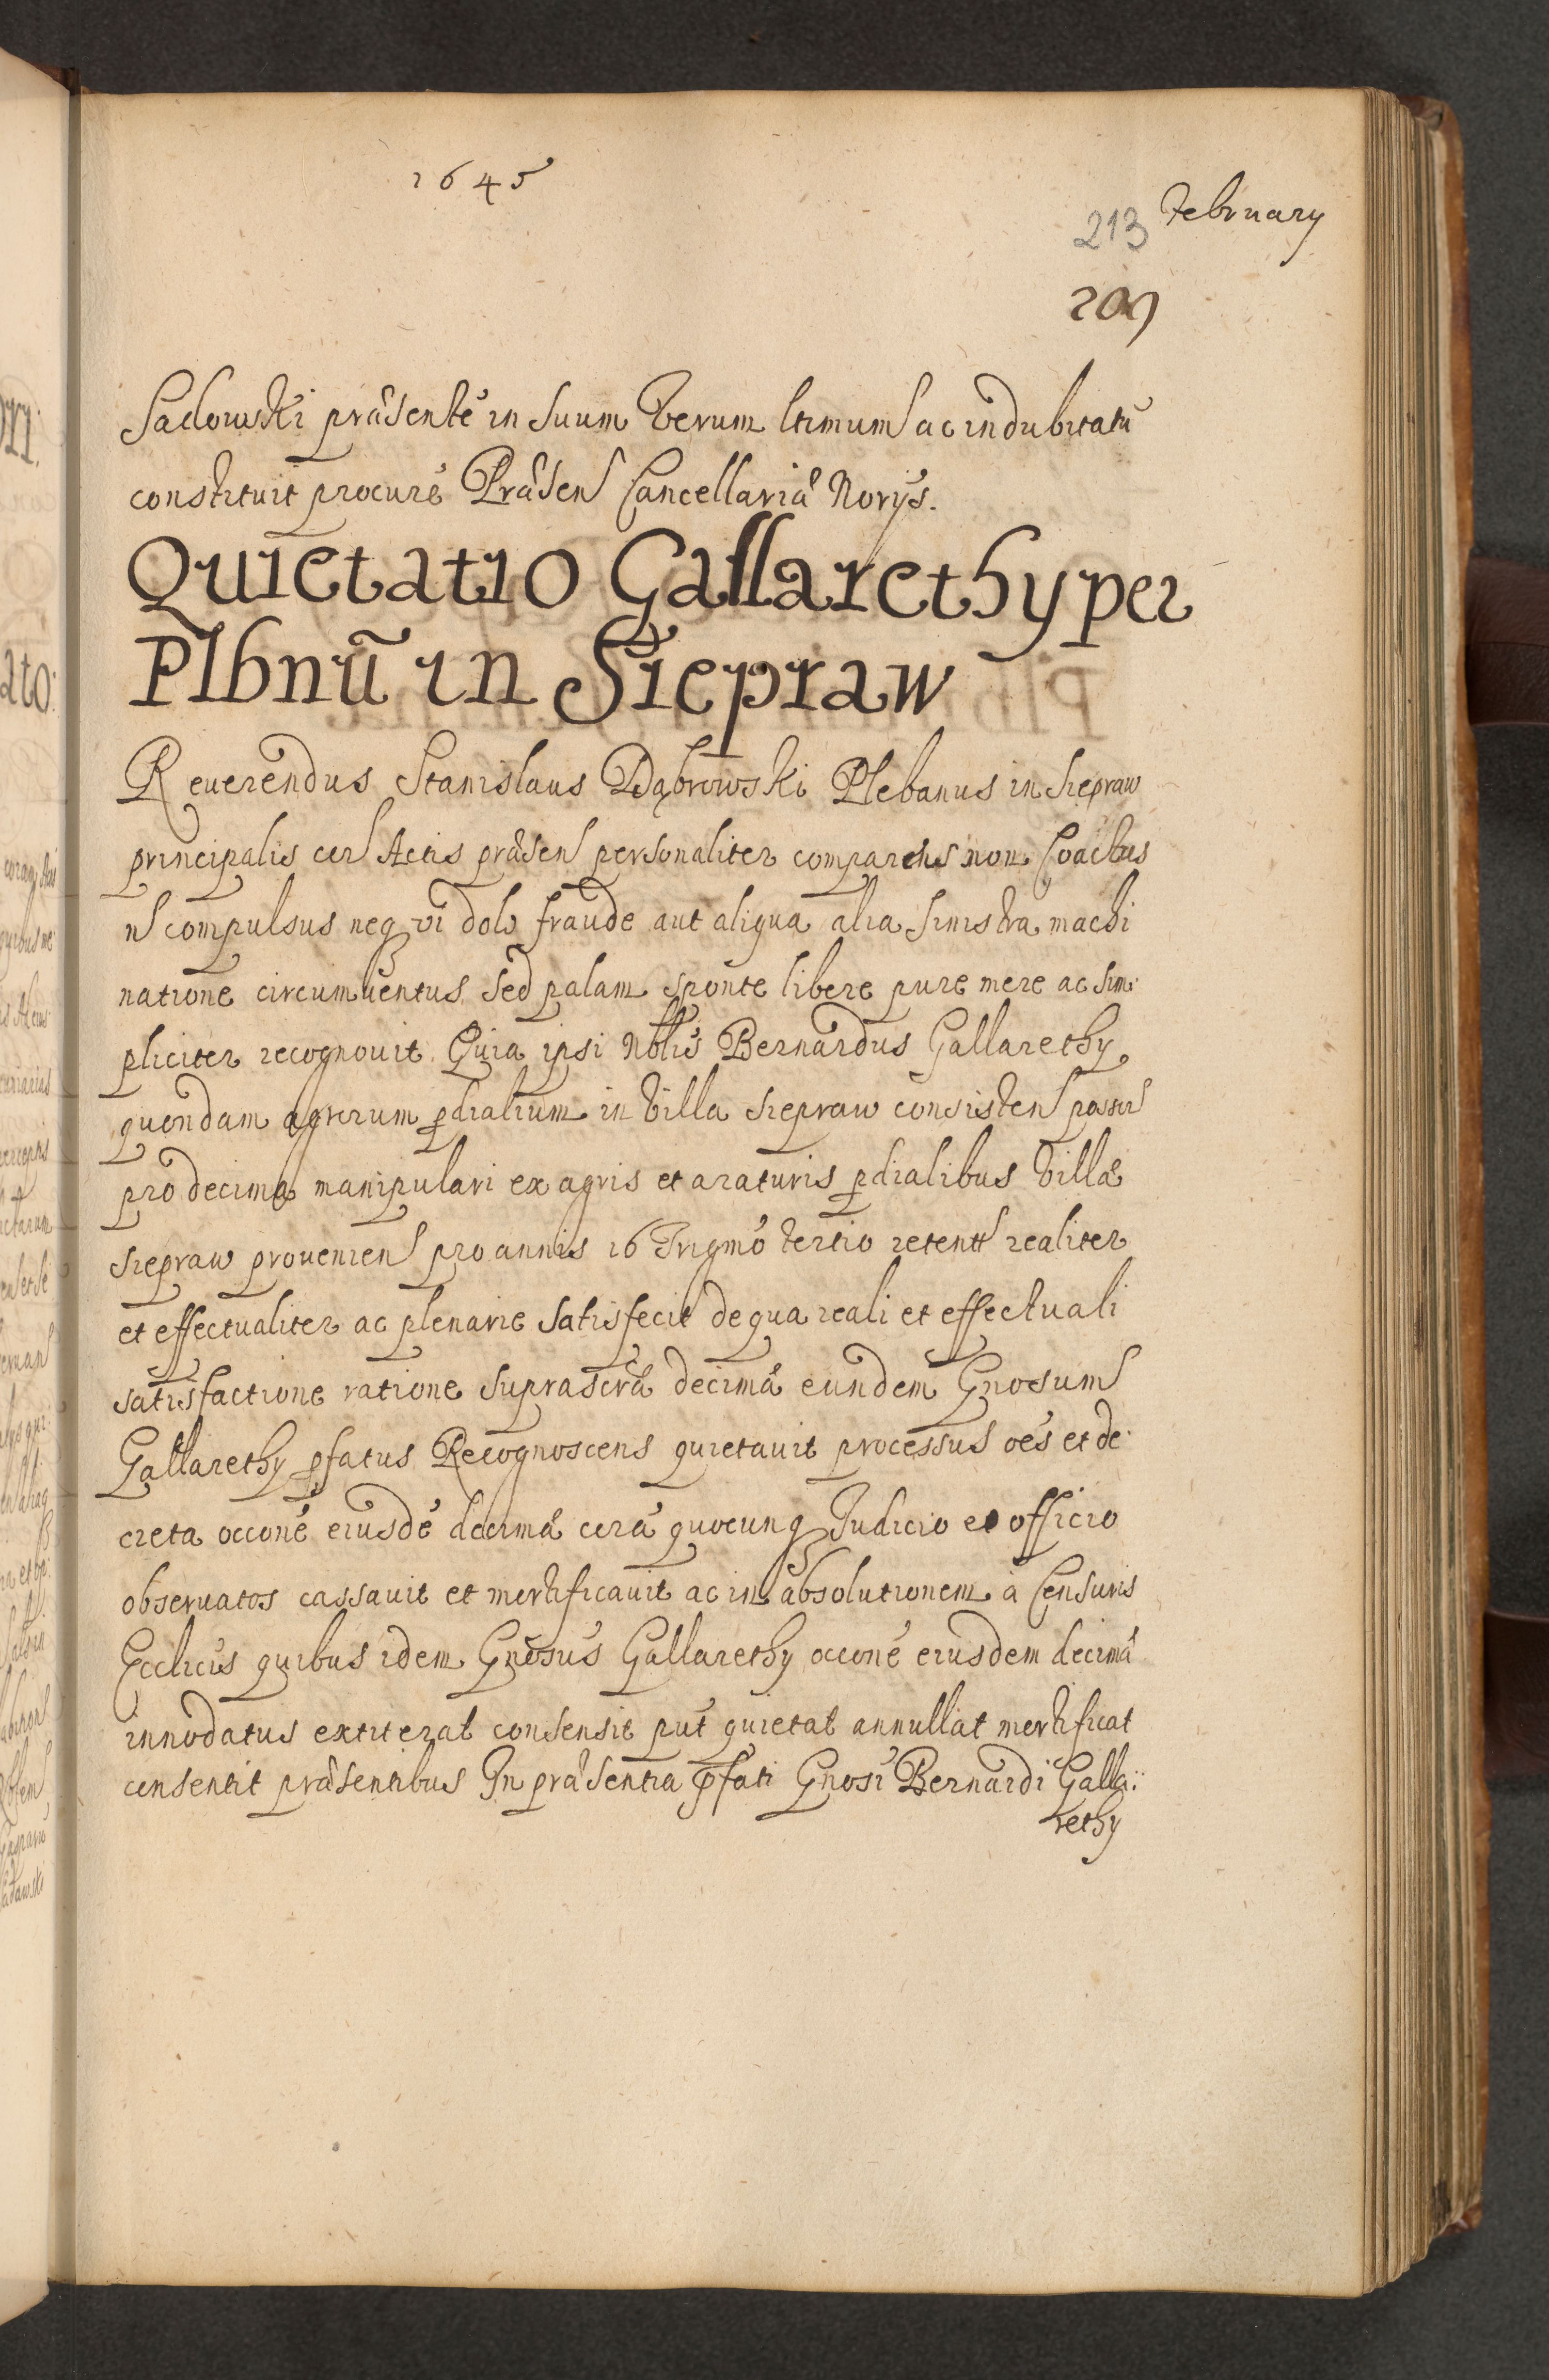 1645
February
213
209
Sadowski präsentē in suum verum ltimum ac indubitatū
constituit procurē Präsen Cancellariä Norijs.
Quietatio Gallarethy per
Plbnū in Siepraw
Reuerendus Stanislaus Dąbrowski Plebanus in Siepraw
principalis cor Actis präsen personaliter comparens non Coactus
n compulsus neq vi dolo fraude aut aliqua alia sinistra machi
natione circumuentus sed palam sponte libere pure mere ac sim
pliciter recognouit Quia ipsi Nblis Bernardus Gallarethy
quondam agrorum pdialium in villa Siepraw consisten possor
pro decima manipulari ex agris et araturis pdialibus villä
Siepraw prouenien pro annis 16 Trigmo tertio retent realiter
et effectualiter ac plenarie satisfecit de qua reali et effectuali
satisfactione ratione suprascrä decimä eundem Gnosum
Gallarethy pfatus Recognoscens quietauit processus oēs et de
creta occonē eiusdē decimä corā quocunq Judicio et officio
obseruatos cassauit et mortificauit ac in absolutionem à Censuris
Ecclicis quibus idem Gnosus Gallarethy occonē eiusdem decimä
innodatus extiterat consensit put quietat annullat mortificat
consentit präsentibus In präsentia pfati Gnosi Bernardi Galla:
rethy